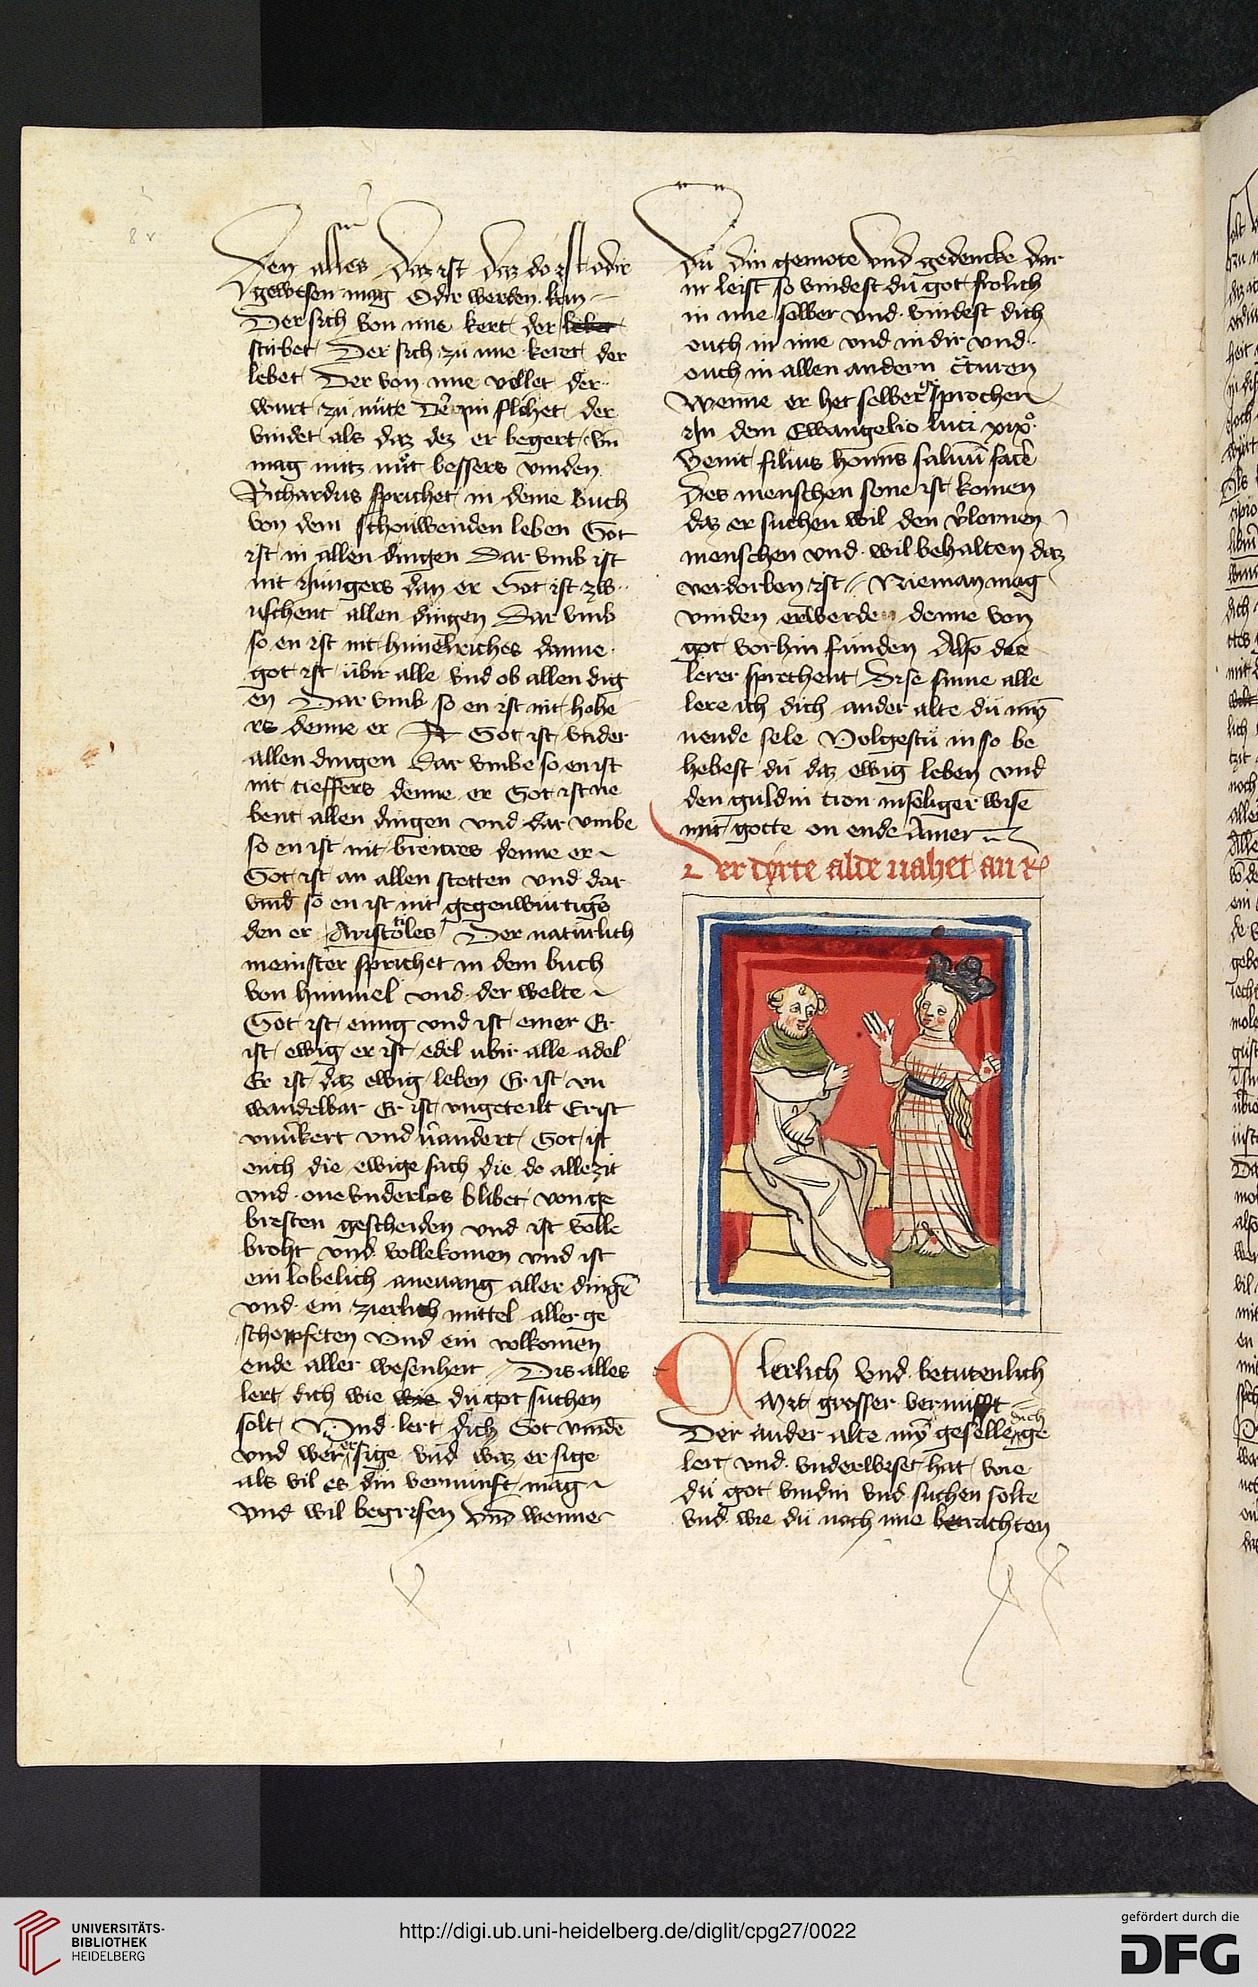 8v
den alles daz ist daz do ist odir
gewesen mag Odir werden kan
Der sich von ime kert der leber
stirbet Der sich zü ime keret der
lebet Der von ime vellet der
wurt zü nüte Der in flihet der
vindet als daz dez er begert vn̄
mag mitz nüt bessers vinden
Richardus sprichet in deme buch
von dem schouwenden leben Got
ist in allen dingen Dar vmb ist
nit Innigers dan er Got ist zw
uschent allen dingen Dar vmb
so en ist nit himelriches danne
got ist übir alle vnd ob allen ding
en Dar vmb so en ist nit hohe
rs denne er Got ist vnder
allen dingen Dar vmbe so en ist
nit tieffers denne er Got ist ne
bent allen dingen vnd dar vmbe
so en ist nit breittes denne er
Got ist an allen stetten vnd dar
vmb so en ist nit gegenwürtigs
den er Aristotiles Der natürlich
meinster sprichet in dem buch
von himmel vnd der welte
Got ist einig vnd ist einer Er
ist ewig er ist edel übir alle adel
Er ist daz ewig leben Er ist vn
wandelbar Er ist vngeteilt Er ist
vnu̕kert vnd v̕andert Got ist
ouch die ewige sach die do allezit
vnd one vnderlos blibet von ge
bresten gescheiden vnd ist volle
broht vnd vollekomen vnd ist
ein lobelich anevang aller dingē
vnd ein zierlich mittel aller ge
schopfeten Vnd ein volkomen
ende aller wesenheit Dis alles
lert dich wie wie du got suchen
solt Vnd lert dich Got vindē
vnd wer er sige vnd waz er sige
als vil es din vernunft mag
vnd wil begrifen vnd wenne
du din gemote vnd gedencke dar
in leist so vindest dü got frolich
in ime selber vnd vindest dich
ouch in ime vnd in dir vnd
ouch in allen andern c̄turen
Wenne er het selber gesprochen
In dem Ewangelio luci xixo
Venit filius hoīnis saluū facē
Des menschen sone ist komen
daz er suchen wil den v̕lornen
menschen vnd wil behalten daz
verdorben ist Nieman mag
vinden erwerden denne von
got vorhin funden Also die
lerer sprechent Dise sinne alle
lere ich dich ander alte dü my̅
nende sele Volgestü in so be
hebest dü daz ewig leben vnd
den guldin tron in seliger wise
mit gotte on ende Amen
Der dirte alde nahet an
lerlich vnd betutenlich
Mit grosser vernunfft
Der ander alte my̅ geselle dich ge
lert vnd vnderwiset hat wie
dü got vindin vnd suchen solte
vnd wie dü noch ime betrachten
UNIVERSITÄTS-
BIBLIOTHEK
HEIDELBERG
http://digi.ub.uni-heidelberg.de/diglit/cpg27/0022
gefördert durch die
DFG